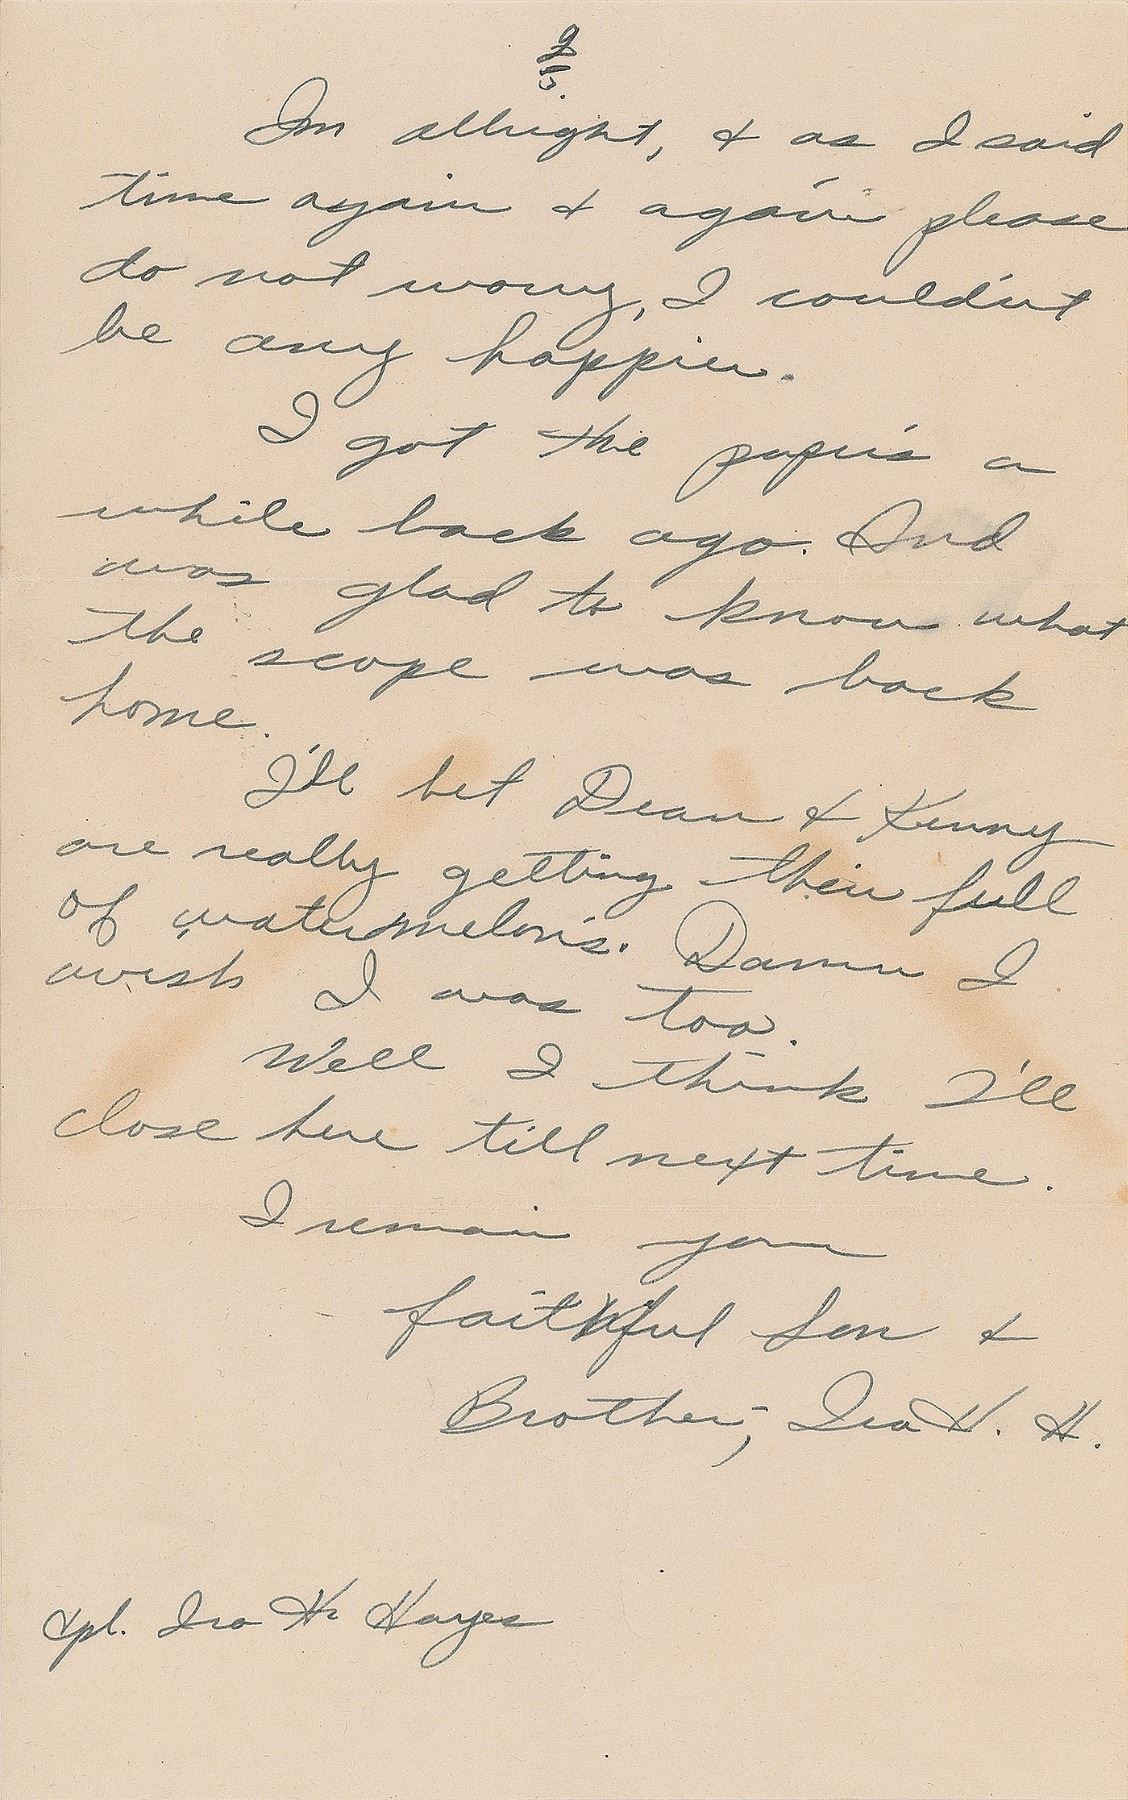 2
Im allright, & as I said
time again & again please
do not worry, I could'nt
be any happier.
I got the paper's a
while back ago. And
was glad to know what
the scope was back
home.
I'll bet Dean & Kenny
are really getting their full
of watermelon's. Damn I
wish I was too.
Well I think I'll
close here till next time.
I remain your
faithful Son &
Brother, Ira H. H.
Cpl. Ira H. Hayes